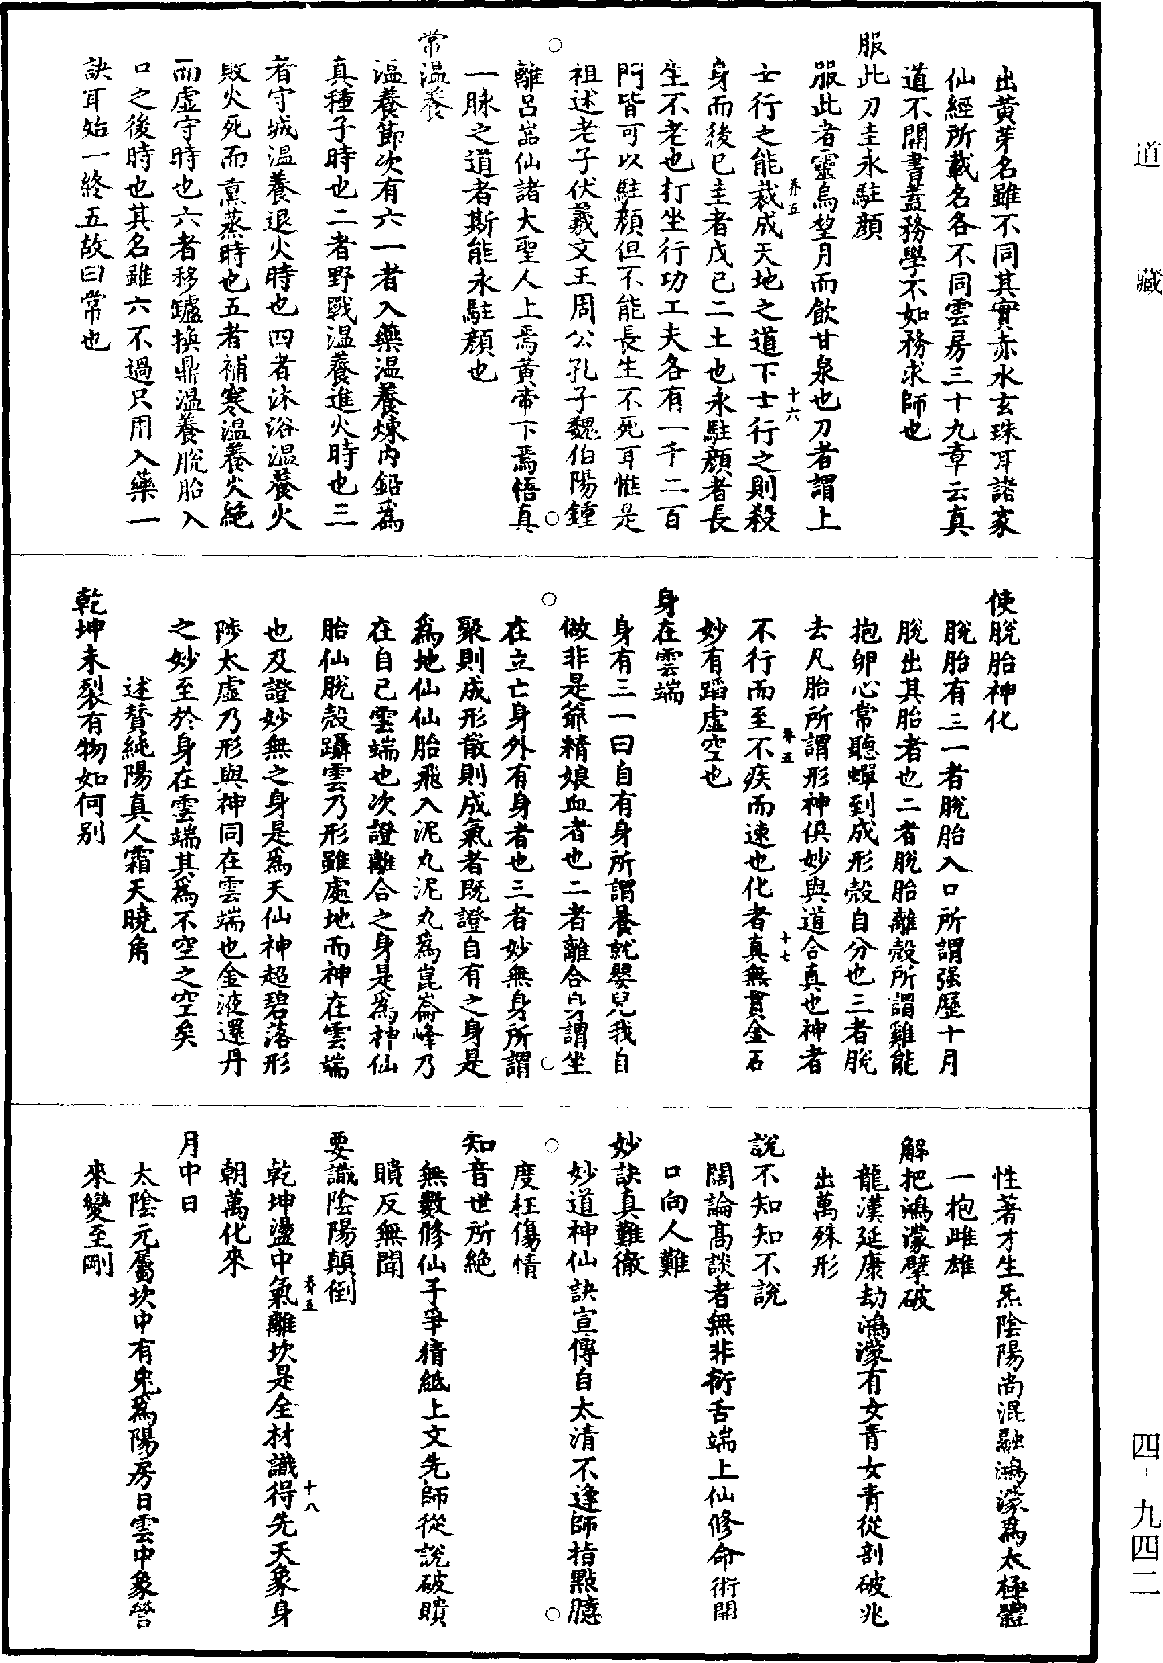 道藏
四-九四二
出黃芽名雖不同其實赤水玄珠耳諸家
仙經所載名各不同雲房三十九章云真
道不開書蓋務學不如務求師也
服此刀圭永駐顏
服此者靈烏望月而飲甘泉也刀者謂上
士行之能裁成天地之道下士行之則殺
卷五
十六
身而後已圭者戊己二土也永駐顏者長
生不老也打坐行功工夫各有一千二百
門皆可以駐顏但不能長生不死耳惟是
祖述老子伏羲文王周公孔子魏伯陽鍾
離呂嵓仙諸大聖人上焉黃帝下焉悟真
一脉之道者斯能永駐顏也
常溫養
溫養節次有六一者入藥溫養煉內鉛為
真種子時也二者野戰溫養進火時也三
者守城溫養退火時也四者沐浴溫養火
敗火死而熏蒸時也五者補寒溫養火絕
而虛守時也六者移罏換鼎溫養脫胎入
口之後時也其名雖六不過只用入藥一
訣耳始一終五故曰常也
使脫胎神化
脫胎有三一者脫胎入口所謂强歷十月
脫出其胎者也二者脫胎離殼所謂雞能
抱卵心常聽蟬到成形殼自分也三者脫
去凡胎所謂形神俱妙與道合真也神者
不行而至不疾而速也化者真無貫金石
卷五
十七
妙有蹈虛空也
身在雲端
身有三一曰自有身所謂養就嬰兒我自
做非是爺精娘血者也二者離合身謂坐
在立亡身外有身者也三者妙無身所謂
聚則成形散則成氣者既證自有之身是
為地仙仙胎飛入泥丸泥丸為崑崙峰乃
在自己雲端也次證離合之身是為神仙
胎仙脫殼躡雲乃形雖處地而神在雲端
也及證妙無之身是為天仙神超碧落形
陟太虛乃形與神同在雲端也金液還丹
之妙至於身在雲端其為不空之空矣
述贊純陽真人霜天曉角
乾坤未裂有物如何別
性著才生炁陰陽尚混融鴻濛為太極體
一抱雌雄
解把鴻濛擘破
龍漢延康劫鴻濛有女青女青從剖破兆
出萬殊形
說不知知不說
闊論高談者無非衒舌端上仙修命術開
口向人難
妙訣真難徹
妙道神仙訣宣傳自太清不逢師指點臆
度枉傷情
知音世所絕
無數修仙子爭猜紙上文先師從說破瞆
瞆反無聞
要識陰陽顛倒
卷五
十八
乾坤盪中氣離坎是全材識得先天象身
朝萬化來
月中日
太陰元屬坎中有兔為陽房日雲中象當
來變至剛